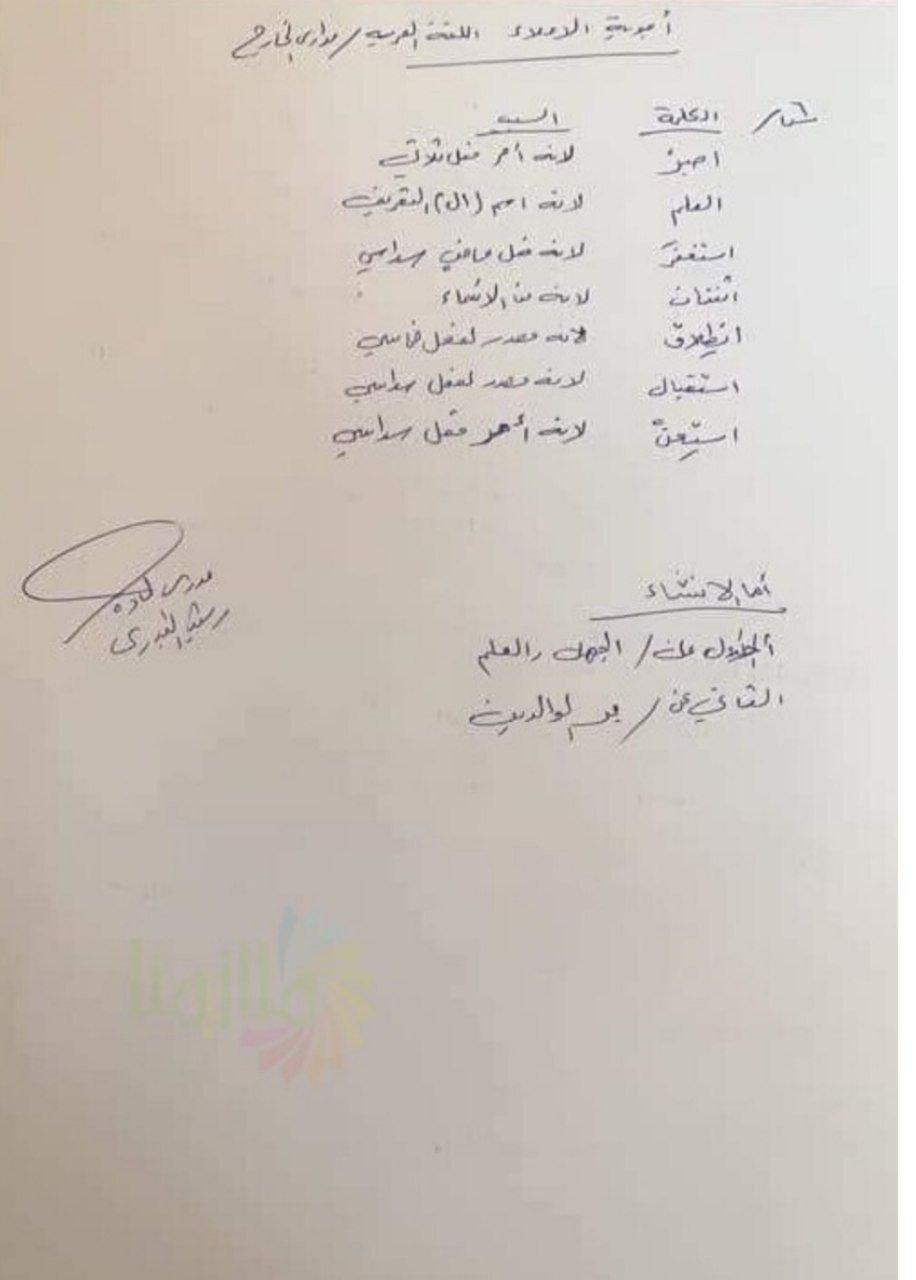 أجوبة الاملاء اللغة العربية / مدارس الخارج
س١/ الكلمة السبب
اصبرْ لانه أمر فعل ثلاثي
العلم لانه اسم (ال) التعريف
استغفرَ لانه فعل ماضي سداسي
اثنتان لانه من الاسماء
انطلاق لانه مصدر لفعل خماسي
استقبال لانه مصدر لفعل سداسي
استعنْ لانه أمر فعل سداسي
أما الانشاء
الاول عن / الجهل والعلم
الثاني عن / بر الوالدين
مدرس المادة
ملازمنا